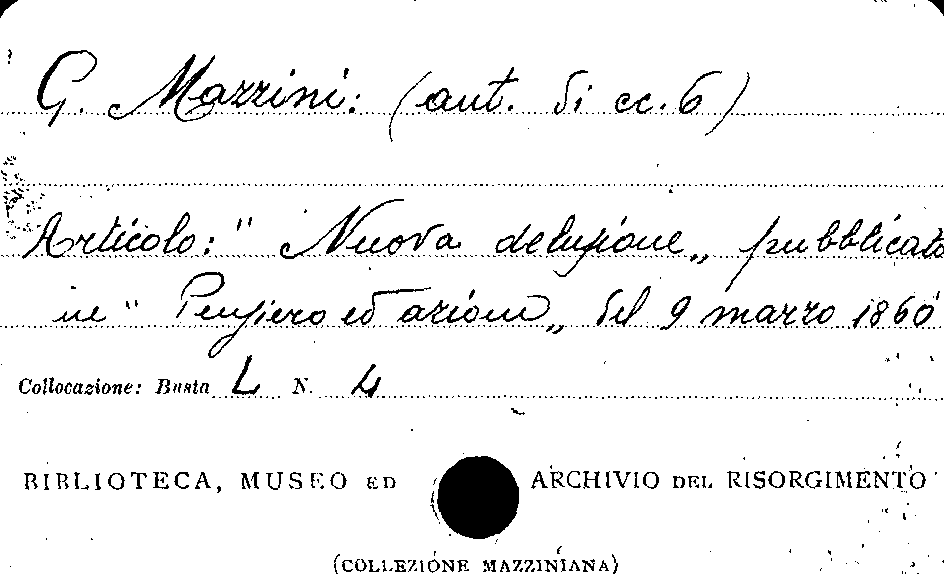 G. Mazzini: (aut. di cc. 6)
Articolo: " Nuova delusione „ pubblicato
in " Pensiero ed azione „ del 9 marzo 1860
Collocazione: Busta L N. 4
BIBLIOTECA, MUSEO ED ARCHIVIO DEL RISORGIMENTO
(COLLEZIONE MAZZINIANA)